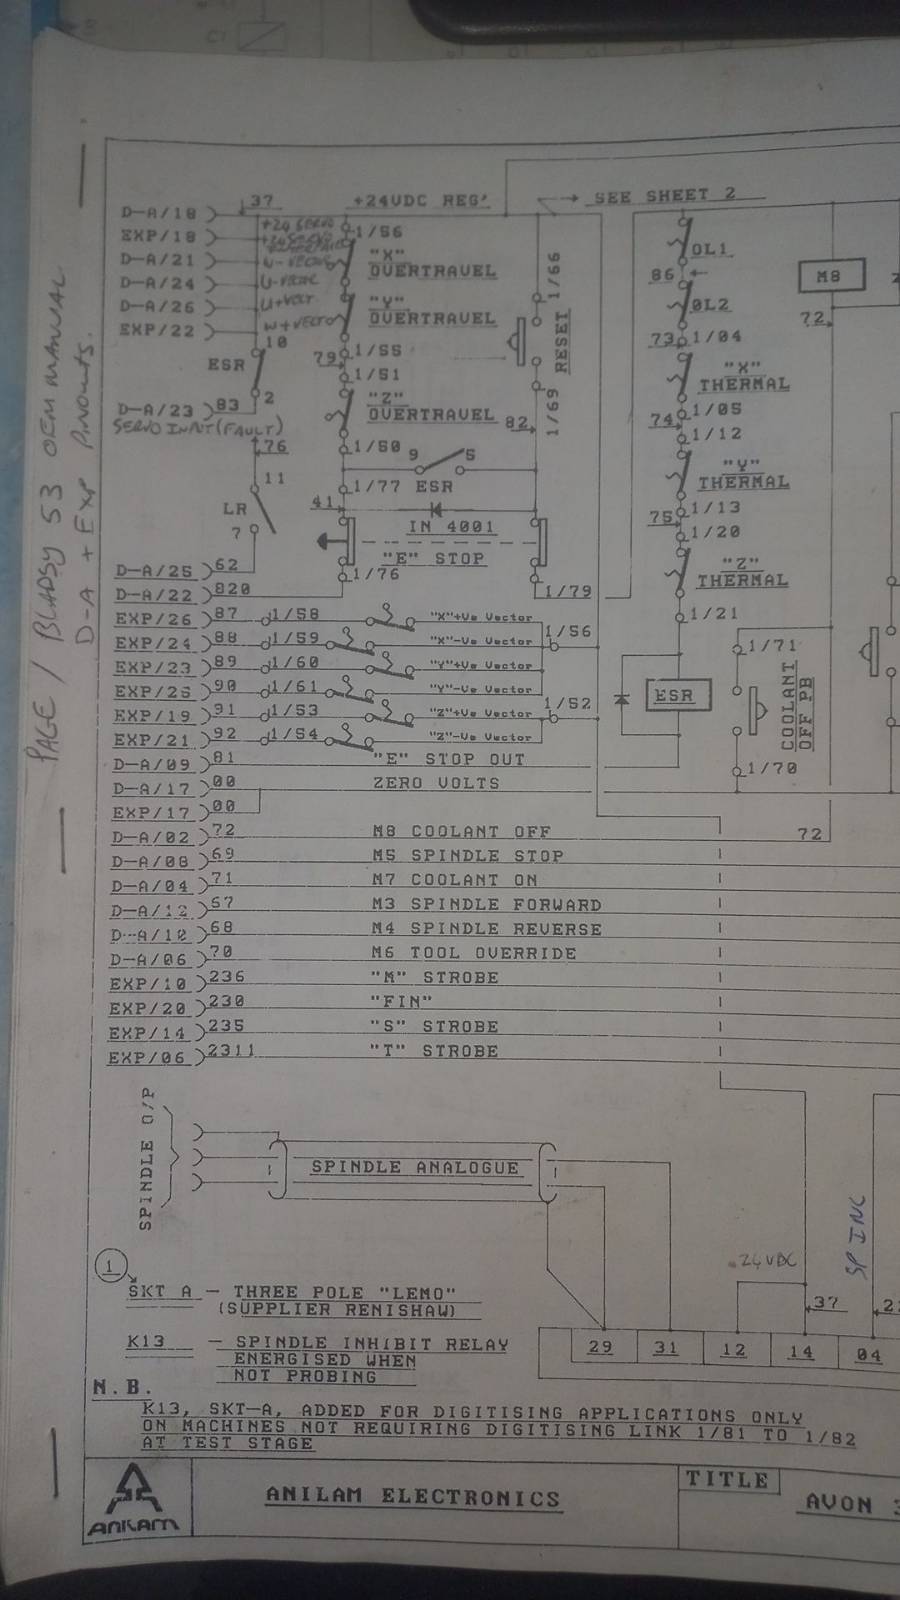 C1
PAGE / BLADSY 53 OEM MANUAL
D-A + EXP PINOUTS.
37
+24VDC REG'
SEE SHEET 2
D-A/18
EXP/18
D-A/21
D-A/24
D-A/26
EXP/22
+24 SERVO
U+VOLT
W+VECTO
1/56
"X"
OVERTRAVEL
"Y"
OVERTRAVEL
10
ESR
2
79
1/55
1/51
"Z"
OVERTRAVEL
1/50
D-A/23 83
SERVO INPUT (FAULT)
76
11
LR
7
1/66
RESET
1/69
82
9 5
ESR
1/77
41
IN 4001
"E" STOP
1/76
1/79
OL1
86
OL2
73 1/04
"X"
THERMAL
1/05
74
1/12
"Y"
THERMAL
1/13
75
1/20
"Z"
THERMAL
1/21
ESR
M8
72
1/71
COOLANT
OFF PB
1/70
D-A/25 62
D-A/22 820
EXP/26 87 1/58 "X"+Ve Vector
EXP/24 88 1/59 "X"-Ve Vector 1/56
EXP/23 89 1/60 "Y"+Ve Vector
EXP/25 90 1/61 "Y"-Ve Vector
EXP/19 91 1/53 "Z"+Ve Vector 1/52
EXP/21 92 1/54 "Z"-Ve Vector
D-A/09 81 "E" STOP OUT
D-A/17 00 ZERO VOLTS
EXP/17 00
D-A/02 72 M8 COOLANT OFF 72
D-A/08 69 M5 SPINDLE STOP
D-A/04 71 M7 COOLANT ON
D-A/12 67 M3 SPINDLE FORWARD
D-A/10 68 M4 SPINDLE REVERSE
D-A/06 70 M6 TOOL OVERRIDE
EXP/10 236 "M" STROBE
EXP/20 230 "FIN"
EXP/14 235 "S" STROBE
EXP/06 2311 "T" STROBE
SPINDLE O/P
SPINDLE ANALOGUE
SP INC
24VDC
37
29 31 12 14 04
1
SKT A - THREE POLE "LEMO"
(SUPPLIER RENISHAW)
K13 - SPINDLE INHIBIT RELAY
ENERGISED WHEN
NOT PROBING
N.B.
K13, SKT-A, ADDED FOR DIGITISING APPLICATIONS ONLY
ON MACHINES NOT REQUIRING DIGITISING LINK 1/81 TO 1/82
AT TEST STAGE
ANILAM
ANILAM ELECTRONICS
TITLE
AVON